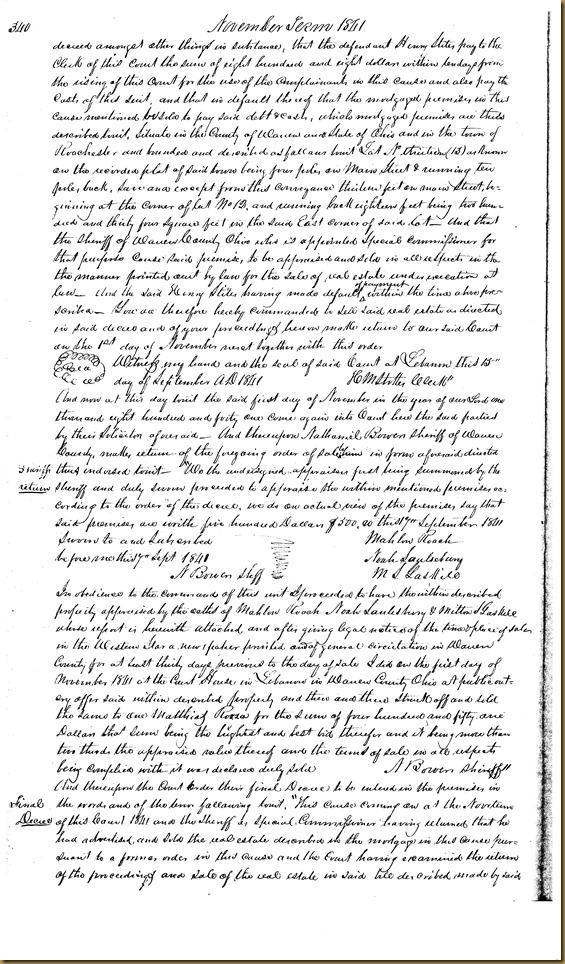 340
November Term 1841
decreed amongst other things in substance, that the defendant Henry Stites pay to the
Clerk of this Court the sum of eight hundred and eight dollars within ten days from
the rising of this Court for the use of the Complainants in this cause and also pay the
Costs of this suit, and that in default thereof that the mortgaged premises in this
Cause mentioned be sold to pay said debt & costs, which mortgaged premises are thus
described towit, Situate in the County of Warren and State of Ohio and in the town of
Roachester and bounded and described as follows towit Lot No thirteen (13) as known
on the recorded plat of said town being four poles on Main Street & running ten
poles back, save and except from this conveyance thirteen feet on main Street, be-
ginning at the corner of lot No 12, and running back eighteen feet being two hun-
dred and thirty four square feet in the said East corner of said lot — And that
the Sheriff of Warren County Ohio who is appointed Special Commissioner for
that purpose cause said premises, to be appraised and sold in all respects in the
the manner pointed out by law for the sale of real estate under execution at
law — And the said Henry Stites having made default of payment within the time above pre-
scribed — You are therefore hereby commanded to sell said real estate as directed
in said decree and of your proceedings hereon make return to our said Court
on the 1st day of November next together with this order
Witness my hand and the seal of said Court at Lebanon this 15th
day of September AD 1841 H M Stokes Clerk"
And now at this day towit the said first day of November in the year of our Lord one
thousand eight hundred and forty one come again into Court here the said parties
by their Solicitors aforesaid — And thereupon Nathaniel Bowen Sheriff of Warren
County, makes return of the foregoing order of sale to him in form aforesaid directed
Sheriffs
return
thus indorsed towit — "We the undersigned appraisers first being summoned by the
Sheriff and duly sworn proceeded to appraise the within mentioned premises ac-
cording to the order of the decree, we do on actual view of the premises say that
said premises are worth five hundred Dollars $500,00 this 17th September 1841
Sworn to and subscribed Mahlon Roach
before me this 17th Sept 1841 Noah Saulsbury
N Bowen Shff M S Gaskill
In obedience to the command of this writ I proceeded to have the within described
property appraised by the oaths of Mahlon Roach Noah Saulsbury & Milton S Gaskill
whose report is herewith attached, and after giving legal notice of the time & place of sale
in the Western Star a newspaper printed and of general circulation in Warren
County, for at least thirty days previous to the day of sale I did on the first day of
November 1841 at the Court House in Lebanon in Warren County Ohio at public out-
cry offer said within described property and then and there struck off and sold
the same to one Matthias for the sum of four hundred and fifty one
Dollars that sum being the highest and best bid therefor and it being more than
two thirds the appraised value thereof and the terms of sale in all respects
being complied with it was declared duly sold N Bowen Sheriff"
And thereupon the Court order their final Decree to be entered in the premises in
Final
Decree
the words and of the tenor following towit, "This cause coming on at the Nov term
of this Court 1841 and the Sheriff as Special Commissioner having returned that he
had advertised, and sold the real estate described in the mortgage in this cause pur-
suant to a former order in this cause and the Court having examined the return
of the proceedings and sale of the real estate in said bill described made by said